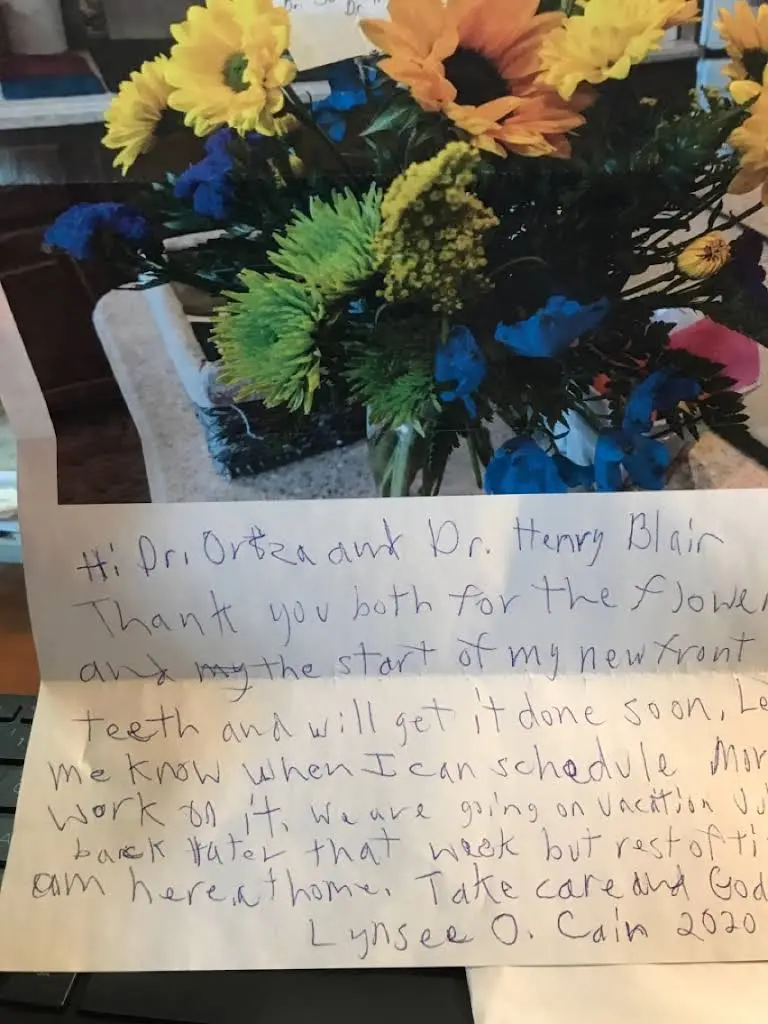 Dr. Dr.
Hi Dr. Ortza and Dr. Henry Blair
Thank you both for the flower
and my the start of my new front
teeth and will get it done soon, Le
me know when I can schedule Mor
work on it. We are going on vacation
back later that week but rest of ti
am here at home. Take care and God
Lynsee O. Cain 2020